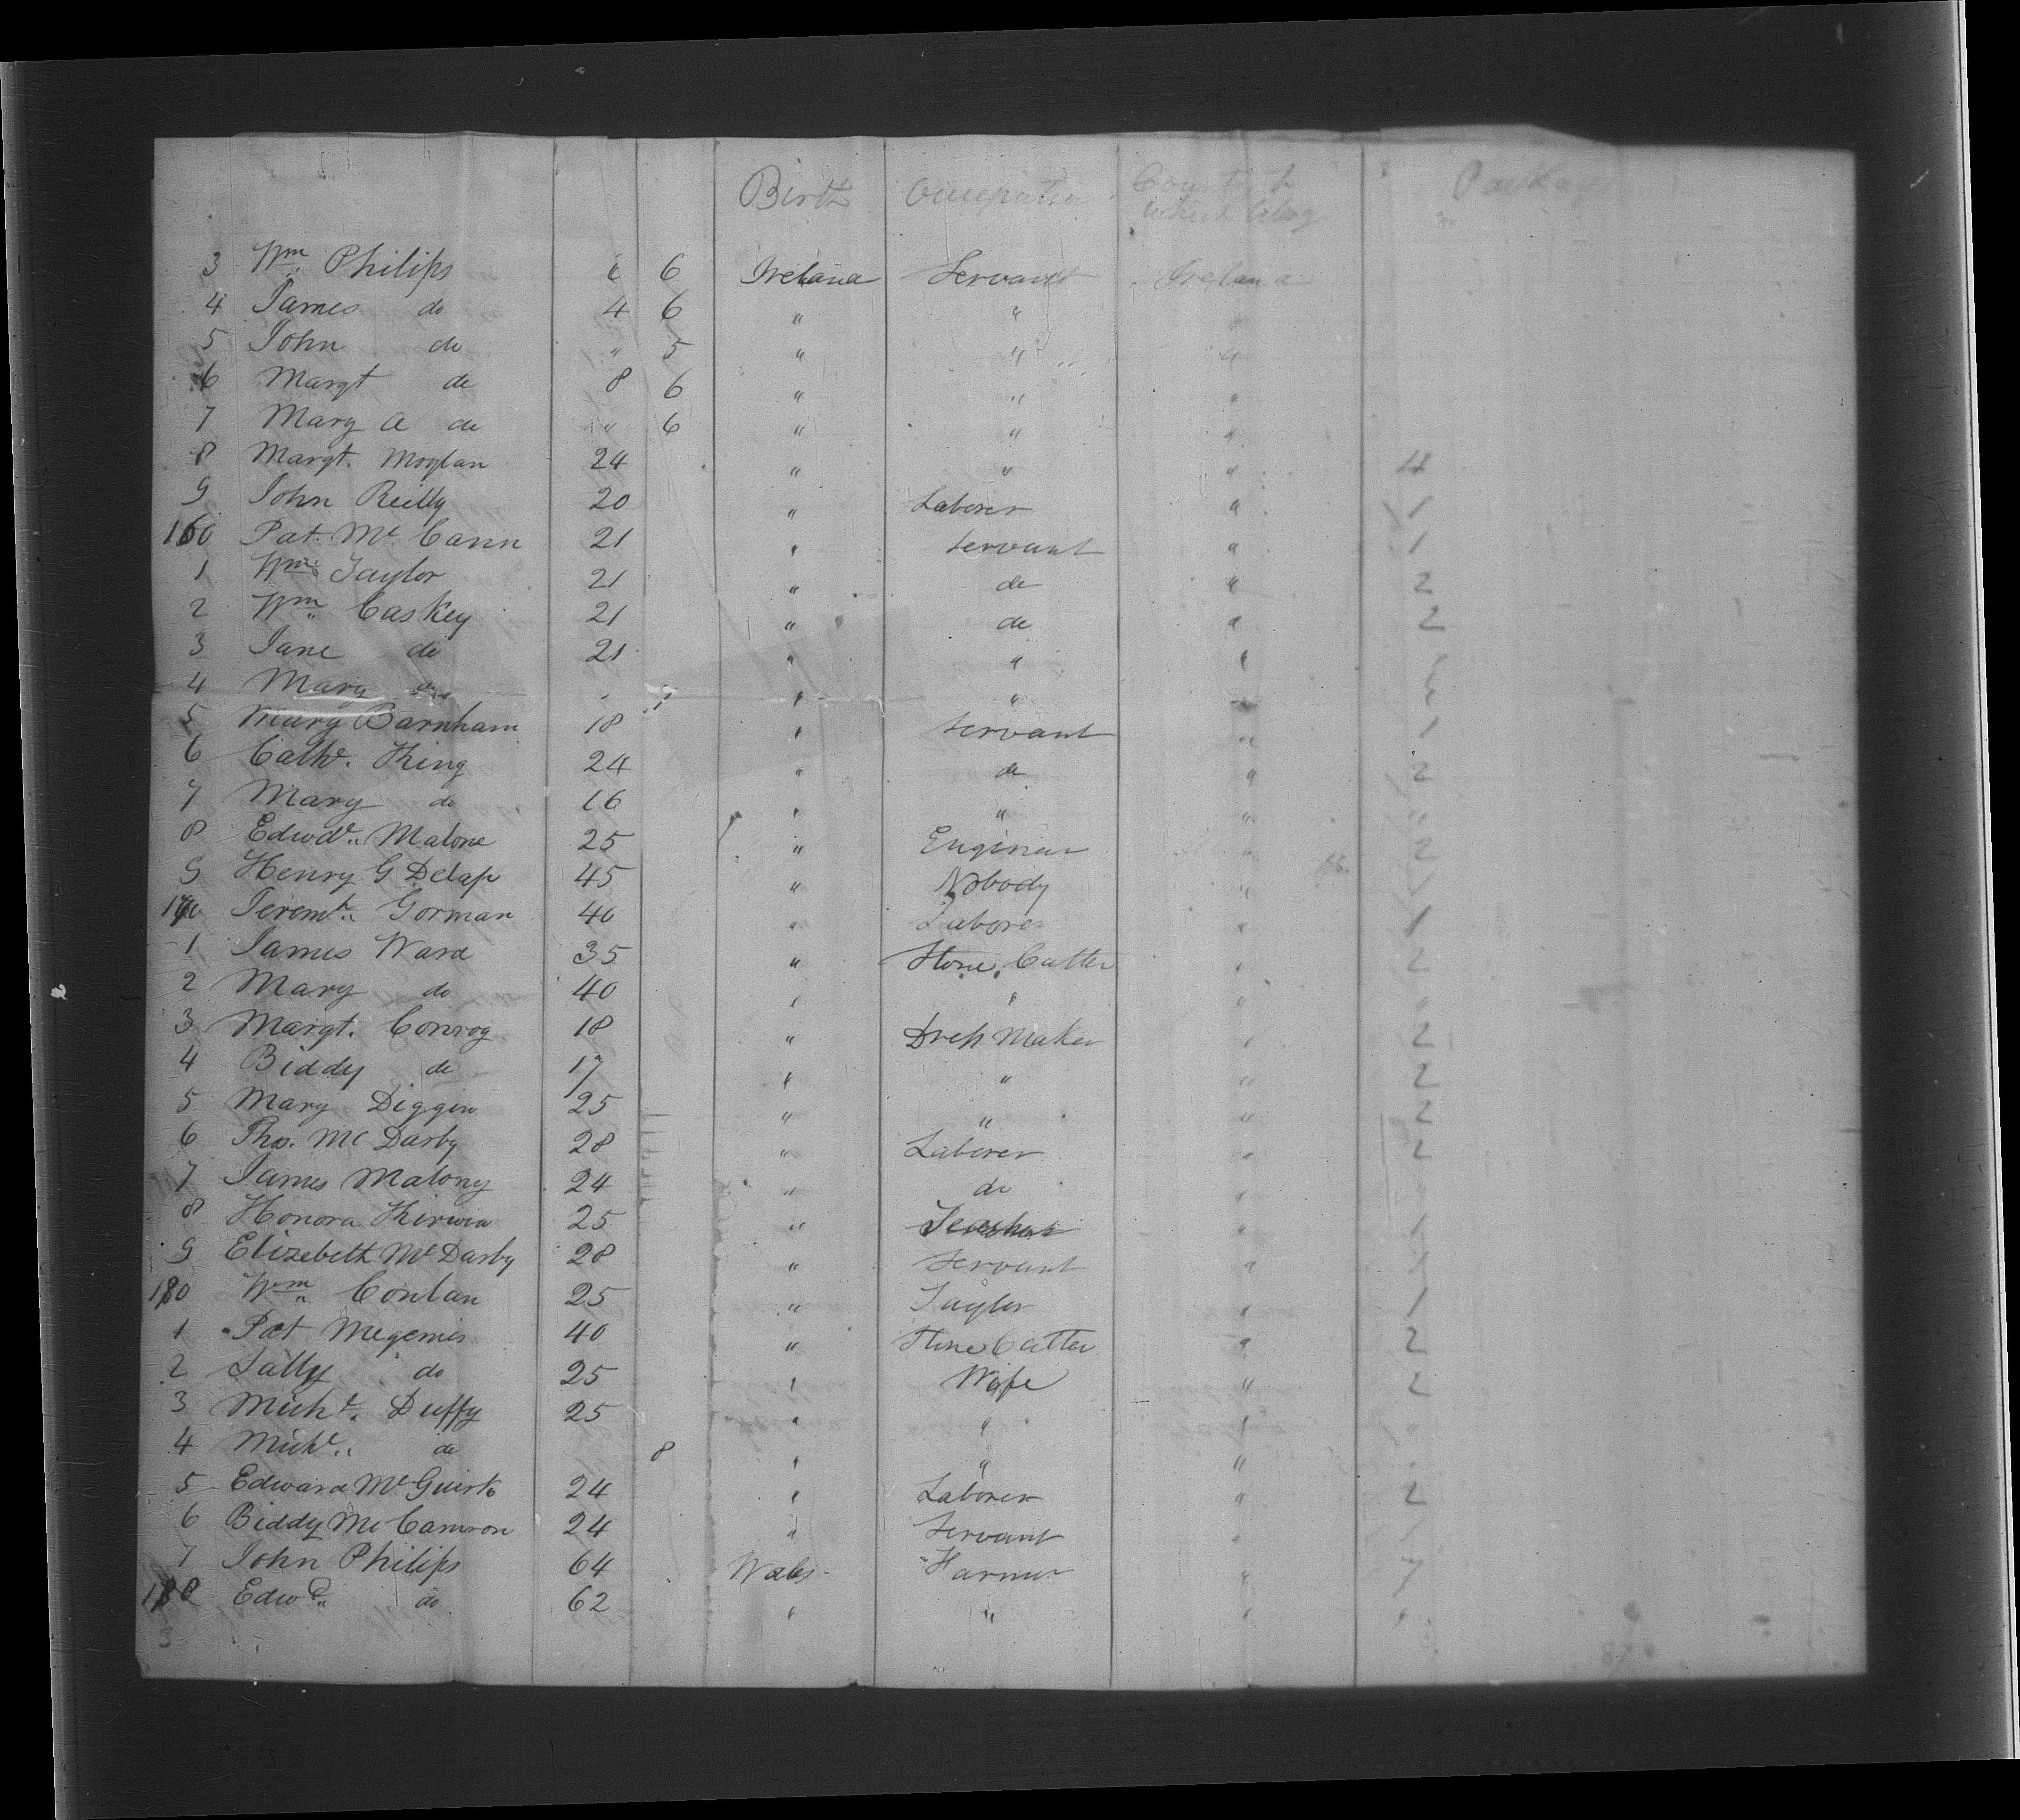 Birth Occupation Country to which belong Packages
3 Wm. Philips 6 6 Ireland Servant Ireland
4 James do 4 6 " " "
5 John do " 5 " " "
6 Margt do 8 6 " " "
7 Mary A do " 6 " " "
8 Margt. Moylan 24 " " " 4
9 John Reilly 20 " Laborer " 1
160 Pat. Mc Cann 21 " Servant " 1
1 Wm. Taylor 21 " do " 2
2 Wm. Caskey 21 " do " 2
3 Jane do 21 " " "
4 Mary do " " "
5 Mary Barnham 18 " Servant " 1
6 Cathe. King 24 " do " 2
7 Mary do 16 " " " "
8 Edwd. Malone 25 " Enginear " 2
9 Henry G Delap 45 " Nobody "
170 Jeremh. Gorman 40 " Laborer " 1
1 James Ward 35 " Stone Cutter " 2
2 Mary do 40 " " " "
3 Margt. Conroy 18 " Dress Maker " 2
4 Biddy do 17 " " " 2
5 Mary Diggin 25 " " " 2
6 Thos. Mc Darby 28 " Laborer " 2
7 James Malony 24 " do " "
8 Honora Kirwin 25 " " 1
9 Elizebeth Mc Darby 28 " Servant " 1
180 Wm. Conlan 25 " Taylor " 1
1 Pat Megennis 40 " Stone Cutter " 2
2 Sally do 25 " Wife " 2
3 Michl. Duffy 25 " " " "
4 Michl. do 8 " " " "
5 Edward Mc Guirk 24 " Laborer " 2
6 Biddy Mc Camron 24 " Servant " 1
7 John Philips 64 Wales Farmer " 7
188 Edwd. do 62 " " " "